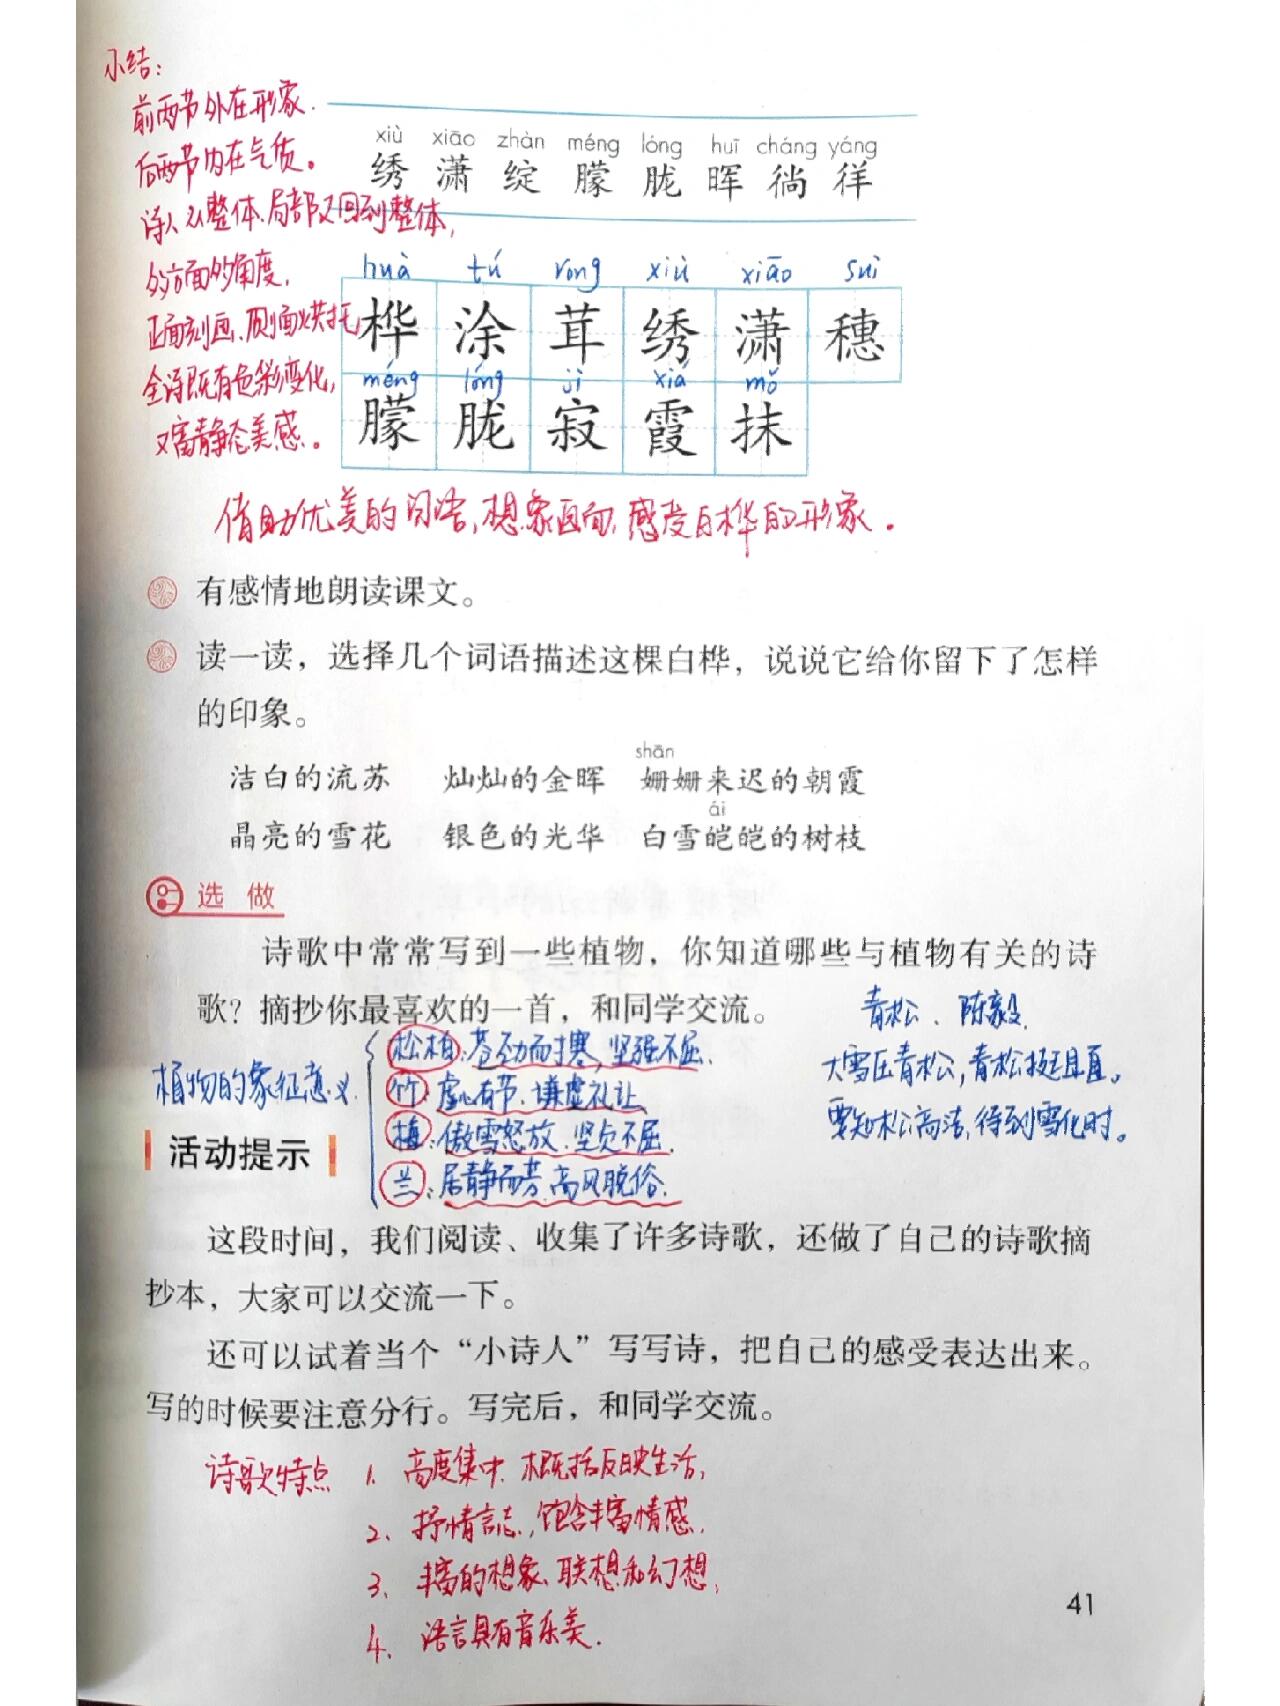 小结：
前两节外在形象.
后两节内在气质。
诗人从整体、局部又回到整体，
多方面多角度，
正面刻画、侧面烘托，
全诗既有色彩变化，
又富静态美感。
xiù xiāo zhàn méng lóng huī cháng yáng
绣 潇 绽 朦 胧 晖 徜 徉
huà tú róng xiù xiāo suì
桦 涂 茸 绣 潇 穗
méng lóng jì xiá mǒ
朦 胧 寂 霞 抹
借助优美的词语，想象画面，感受白桦的形象。
有感情地朗读课文。
读一读，选择几个词语描述这棵白桦，说说它给你留下了怎样
的印象。
shān
洁白的流苏 灿灿的金晖 姗姗来迟的朝霞
ái
晶亮的雪花 银色的光华 白雪皑皑的树枝
选 做
诗歌中常常写到一些植物，你知道哪些与植物有关的诗
歌？摘抄你最喜欢的一首，和同学交流。
青松、陈毅
大雪压青松，青松挺且直。
要知松高洁，待到雪化时。
植物的象征意义
松柏：苍劲而耐寒，坚强不屈.
竹：虚心有节、谦虚礼让
梅：傲雪怒放、坚贞不屈.
兰：居静而芳、高风脱俗.
活动提示
这段时间，我们阅读、收集了许多诗歌，还做了自己的诗歌摘
抄本，大家可以交流一下。
还可以试着当个“小诗人”写写诗，把自己的感受表达出来。
写的时候要注意分行。写完后，和同学交流。
诗歌特点 1、高度集中、概括反映生活，
2、抒情言志，饱含丰富情感，
3、丰富的想象、联想和幻想，
4、语言具有音乐美.
41